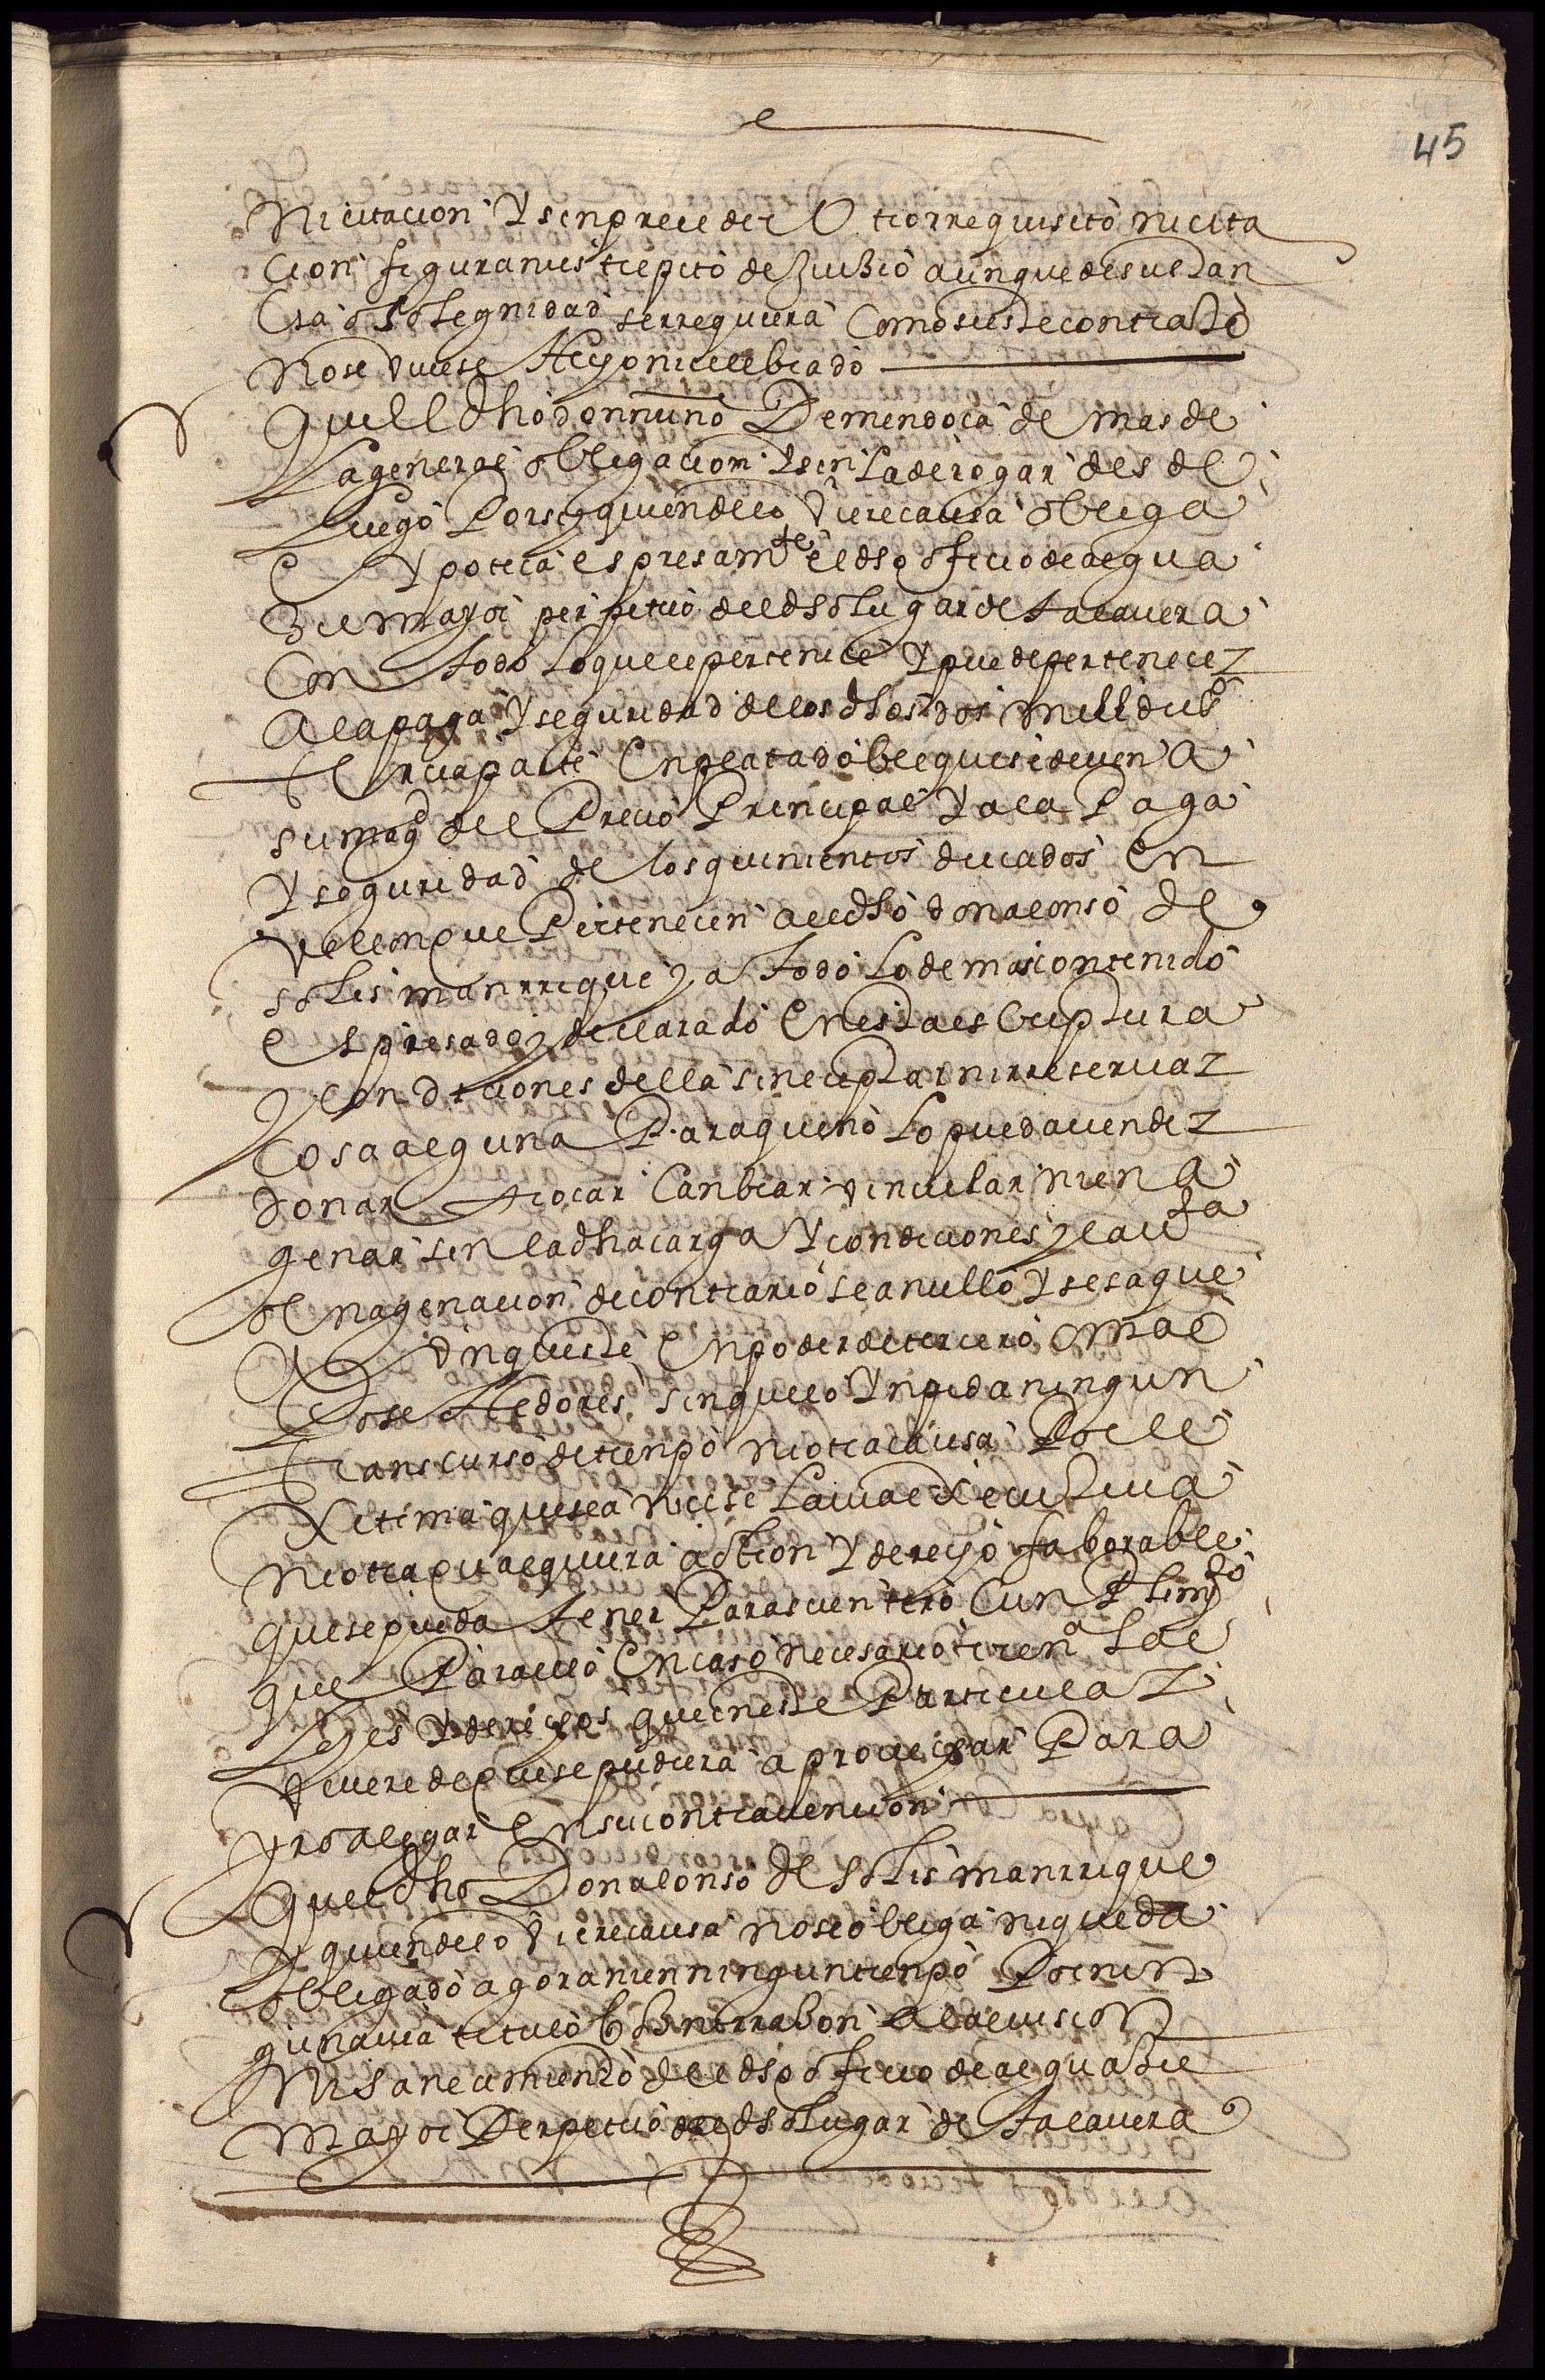 45
Ni citacion Y sin preceder otro rrequisito ni cita
cion figura ni estrepito de Juizio aunque de sustan
cia o solegnidad se rrequiera Como si este contrato
No se vuiese hecho ni celebrado
Que el dho don nuno De mendoça de mas de
La general obligacion Y sin La derogar desde
Luego Por si y quien del vuiere causa obliga
e Ypoteca espresamte el dho oficio de algua
zil mayor perpetuo del dho Lugar de talauera
Con todo Lo que le pertenece Y puede pertenecer
A la paga Y seguridad de los dhos dos mill dus
tercia parte En plata doble que se deuen A
su magd del Precio Principal Y a la Paga
Y seguridad de los quinientos ducados En
Vellon que Pertenecen al dho don alonso de
solis manrrique y a todo Lo demas contenido
Espresado y declarado En esta escriptura
Y condiciones della sin eceptar ni rreseruar
Cosa alguna Para que no Lo pueda vender
donar trocar Canbiar vincular ni en A
genar sin la dha carga Y condiciones y la uta
o Enagenacion de contrario sea nullo Y se saque
A vnque este En poder de tercero o mas
Posehedores sin que lo Ynpida ningun
transcurso de tienpo ni otra causa Por le
xitima que sea ni cese La uia executiua
ni otra qualquiera action Y derecho faborable
que se pueda tener Para su entero Cunplimto
que Para ello En caso necesario rrena Las
Leyes Y derechos que en este Particular
Vuiere de que se pudiera aprouechar Para
Yr o alegar En su contrauencion
Que el dho Don alonso de solis manrrique
Y quien del vuiere causa no se obliga ni queda
obligado agora ni en ningun tienpo Por nin
guna uia titulo o rrazon A la euiscion
Ni saneamiento del dho oficio de alguazil
Mayor Perpetuo del dho Lugar de talauera